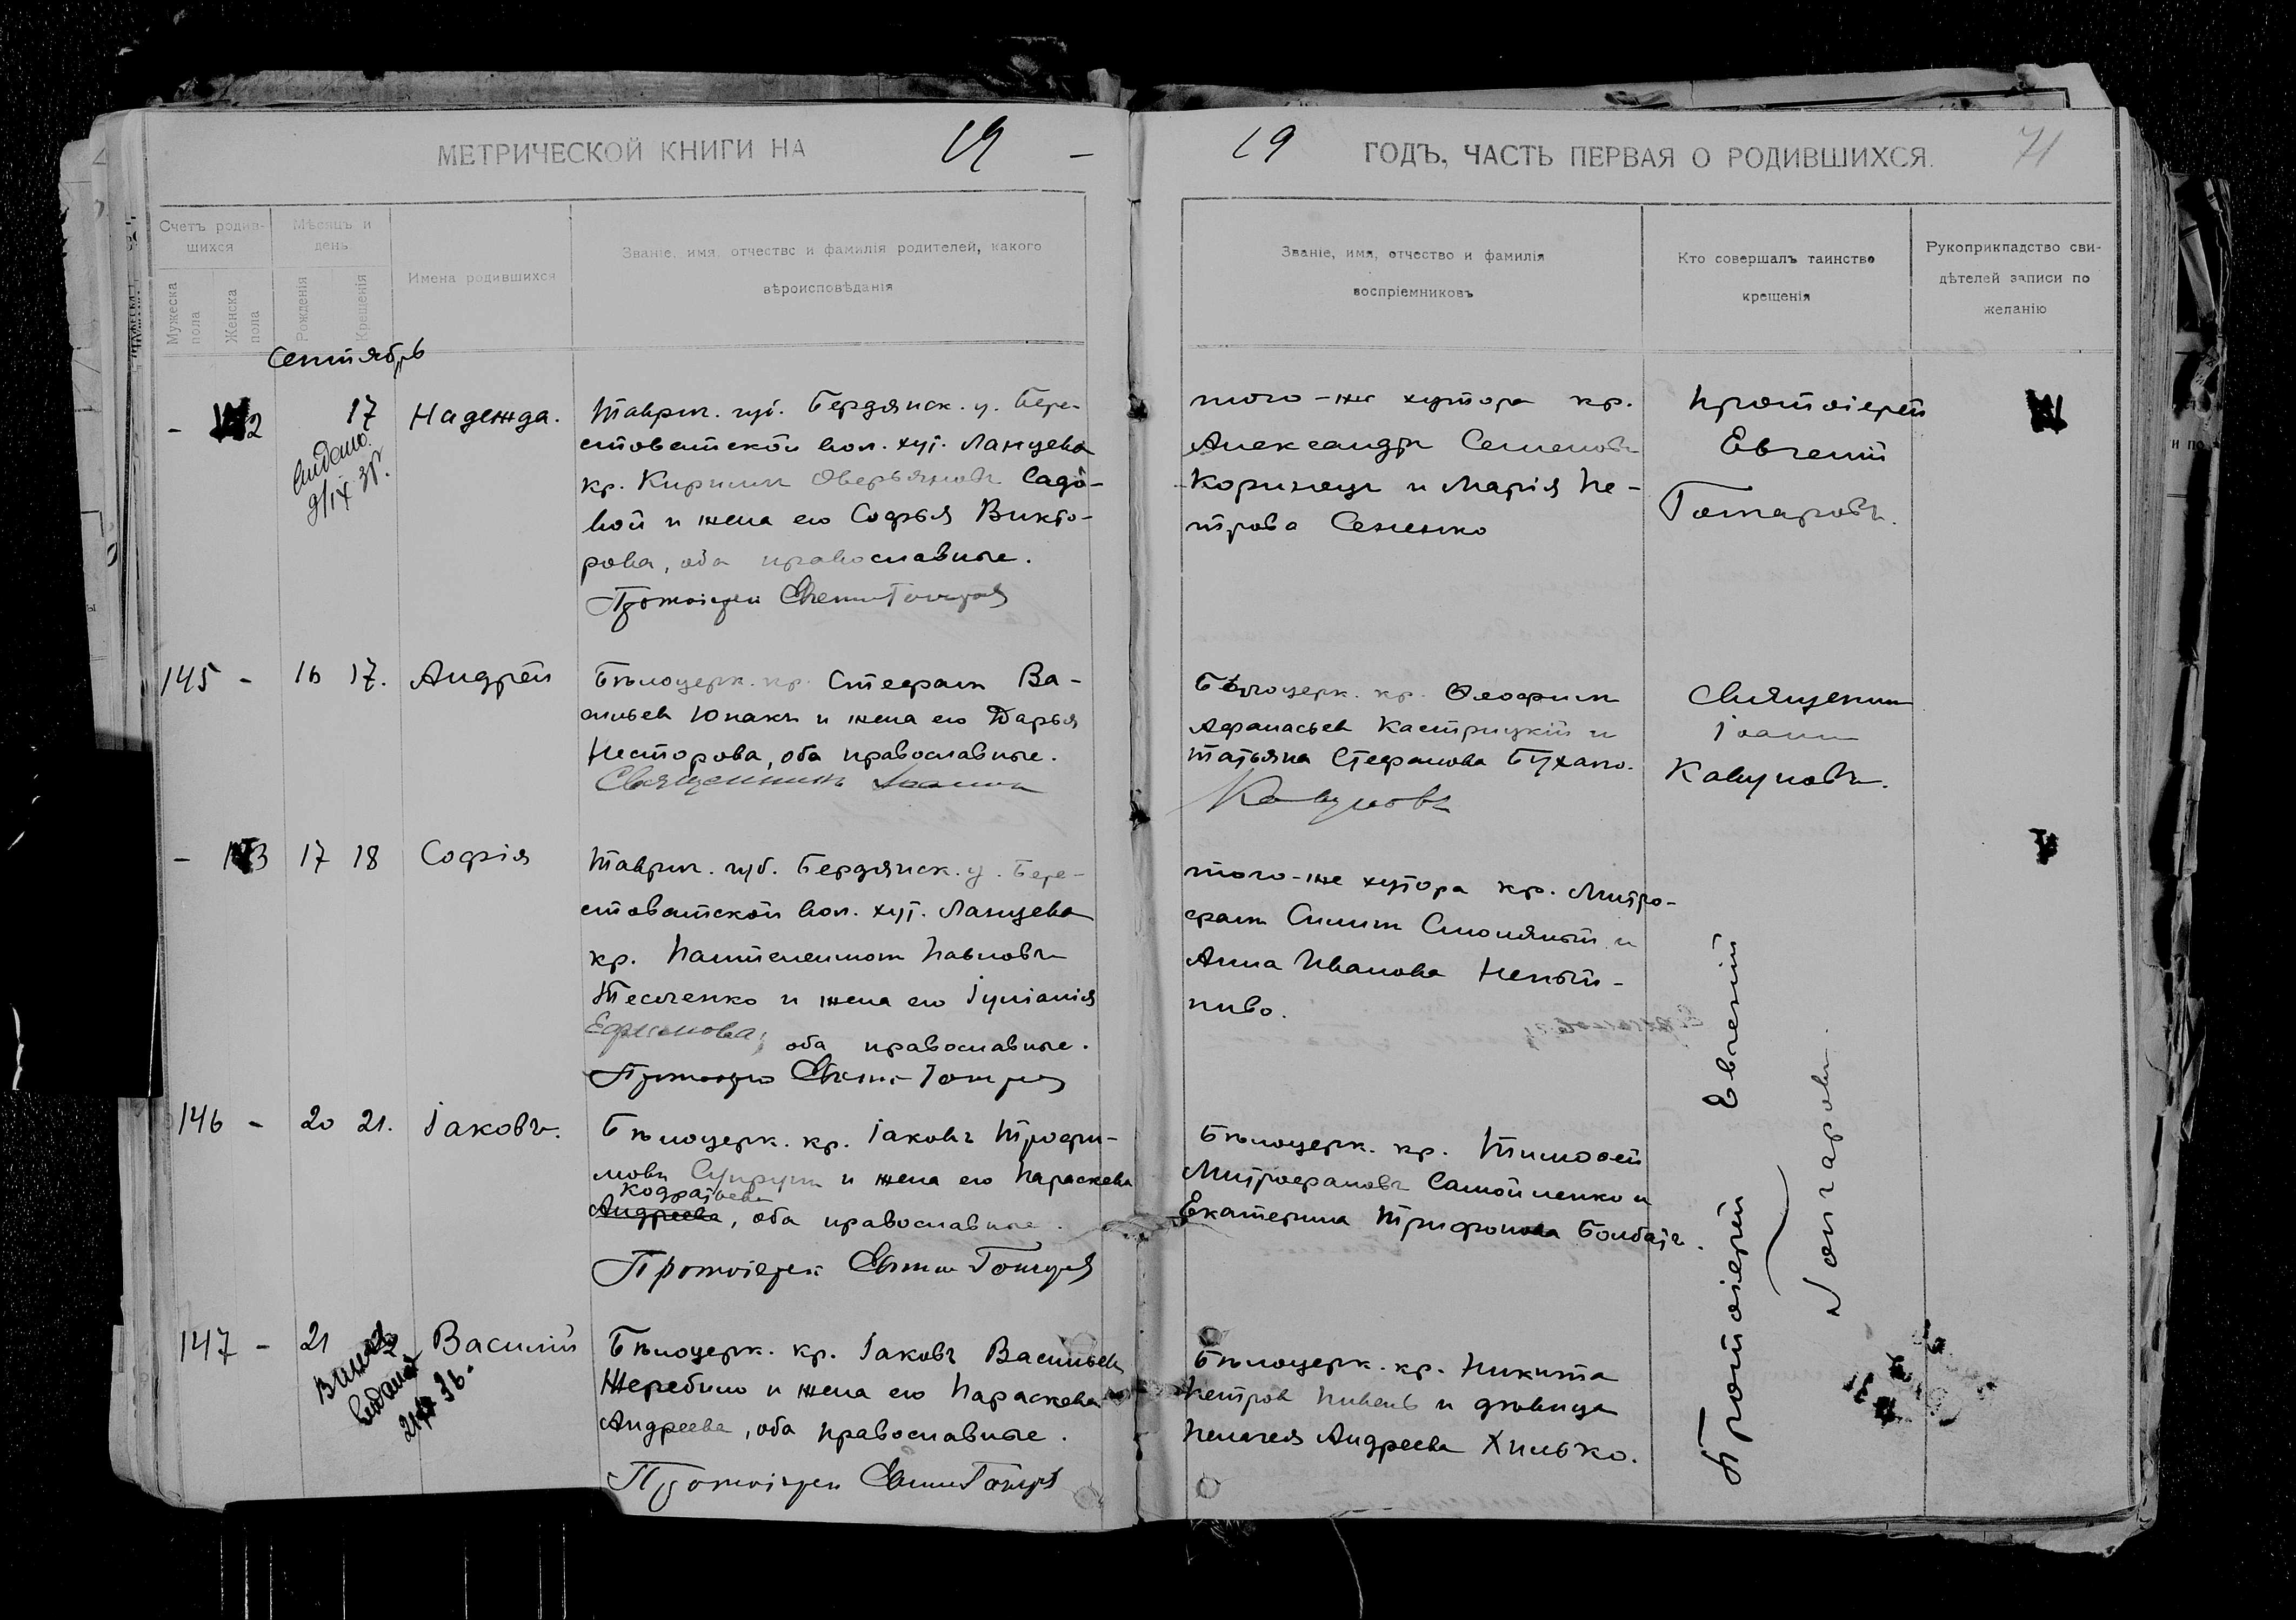 МЕТРИЧЕСКОЙ КНИГИ НА 19 —
19 ГОДЪ, ЧАСТЬ ПЕРВАЯ О РОДИВШИХСЯ.
71
Счетъ родив-
шихся
Мужеска пола
Женска пола
Мѣсяцъ и
день
Рожденія
Крещенія
Имена родившихся
Званіе, имя, отчество и фамилія родителей, какого
вѣроисповѣданія
Званіе, имя, отчество и фамилія
воспріемниковъ
Кто совершалъ таинство
крещенія
Рукоприкладство сви-
дѣтелей записи по
желанію
Сентябрь
- 2 17 Надежда.
Таврич. губ. Бердянск. у. Бере-
стоватской вол. хут. Ланцева
кр. Кириллъ Аверьяновъ Садо-
вой и жена его Софья Викто-
рова, оба православные.
Протоіерей Евгеній Гончаровъ
того-же хутора кр.
Александръ Семеновъ
Коринецъ и Марія Пе-
трова Сененко
Протоіерей
Евгеній
Гончаровъ.
145 - 16 17. Андрей
Бѣлоцерк. кр. Стефанъ Ва-
сильев Юпакъ и жена его Дарья
Несторова, оба православные.
Священникъ Іоаннъ
Бѣлоцерк. кр. Ѳеофилъ
Афанасьев Кастрицкій и
Татьяна Стефанова Бухало.
Кавуновъ
Священник
Іоанн
Кавуновъ.
- 3 17 18 Софія
Таврич. губ. Бердянск. у. Бере-
стоватской вол. хут. Ланцева
кр. Пантелеимон Павловъ
Тесленко и жена его Іуліанія
Ефимова, оба православные.
Протоіерей Евгеній Гончаровъ
того-же хутора кр. Митро-
фанъ Силин Смоляный и
Анна Иванова Непый-
пиво.
146 - 20 21. Іаковъ.
Бѣлоцерк. кр. Іаковъ Трофи-
мовъ Супрун и жена его Параскева
Кодратьева
Андреева, оба православные.
Протоіерей Евгеній Гончаровъ
Бѣлоцерк. кр. Тимоѳей
Митрофановъ Самойленко и
Екатерина Трифонова Болбатъ.
147 - 21 Василій
Бѣлоцерк. кр. Іаковъ Васильев
Жеребило и жена его Параскева
Андреева, оба православные.
Протоіерей Евгеній Гончаровъ
Бѣлоцерк. кр. Никита
Петров Пивень и дѣвица
Пелагея Андреева Хилько.
Протоіерей Евгеній
Гончаровъ.